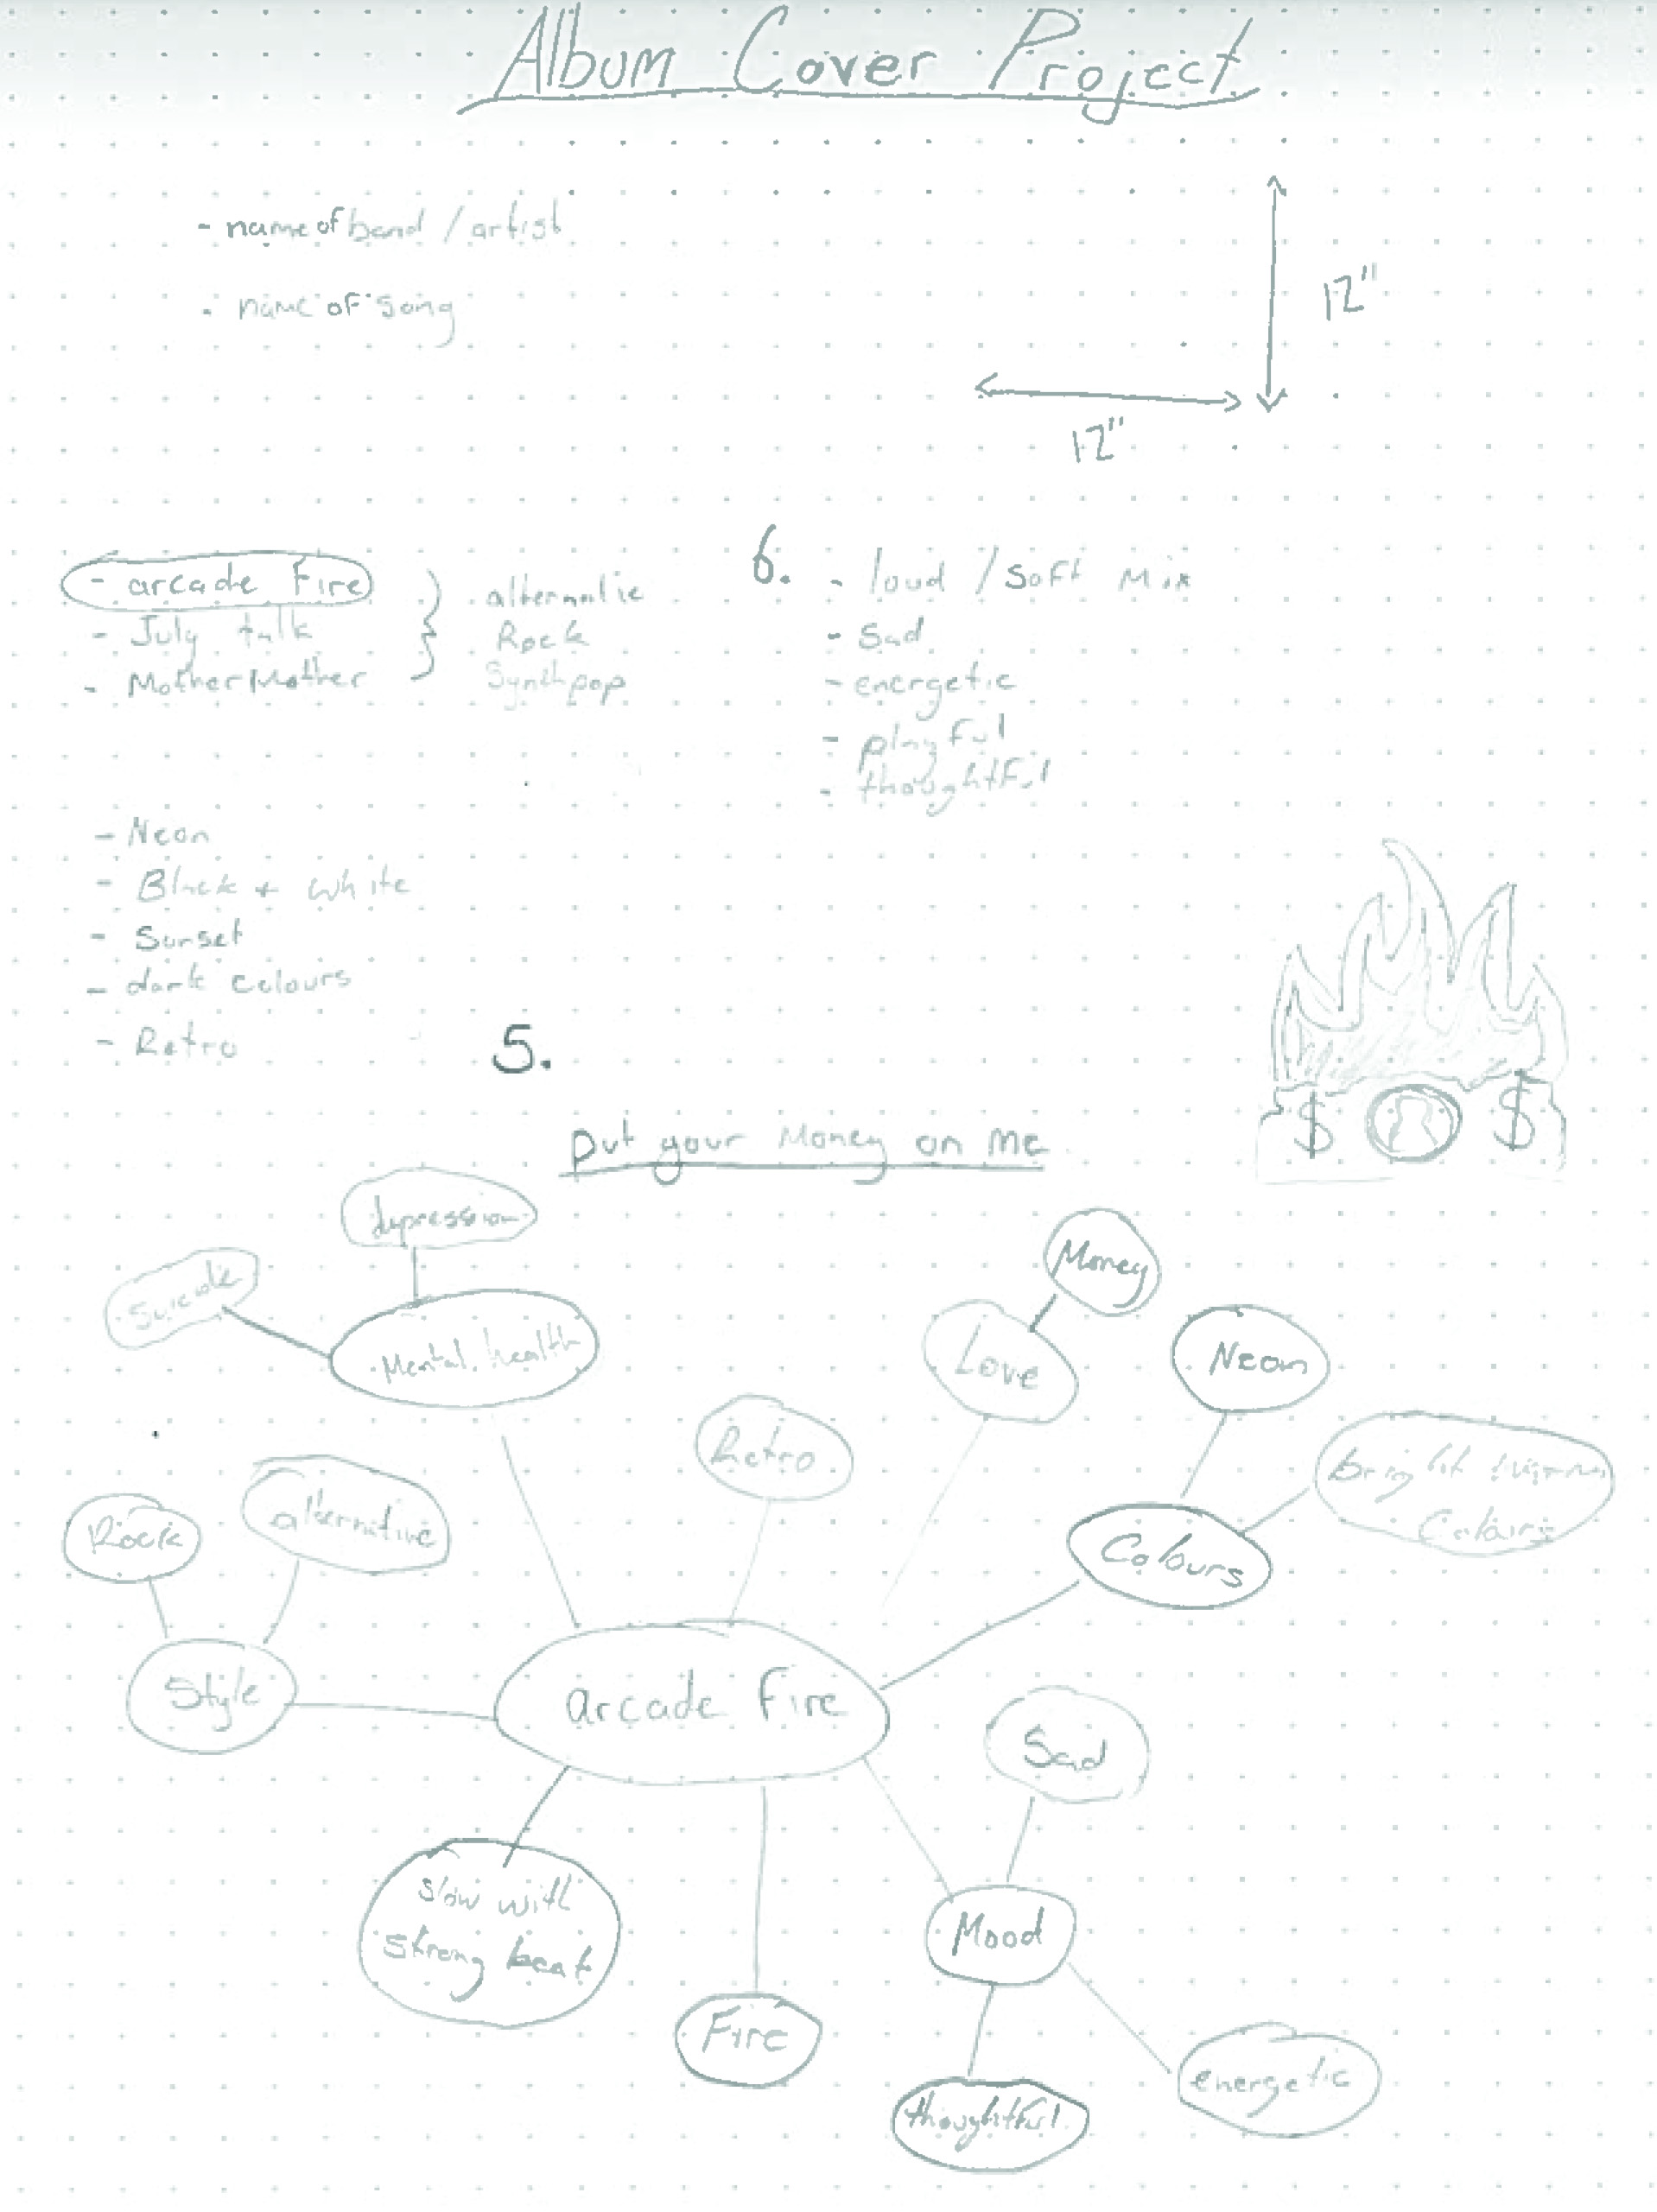 Album Cover Project
- name of band / artist
- name of song
12"
12"
- arcade Fire
- July talk
- Mother Mother
alternatie
Rock
Synthpop
6.
- loud / soft Mix
- Sad
- energetic
- playful
- thoughtful
- Neon
- Black + white
- Sunset
- dark colours
- Retro
5.
$ $
put your Money on me
depression
Suicide
Mental health
Money
Love
Neon
Retro
bright
Colours
Rock
alternative
Colours
Style
arcade Fire
Sad
Slow with
strong beat
Mood
Fire
energetic
thoughtful